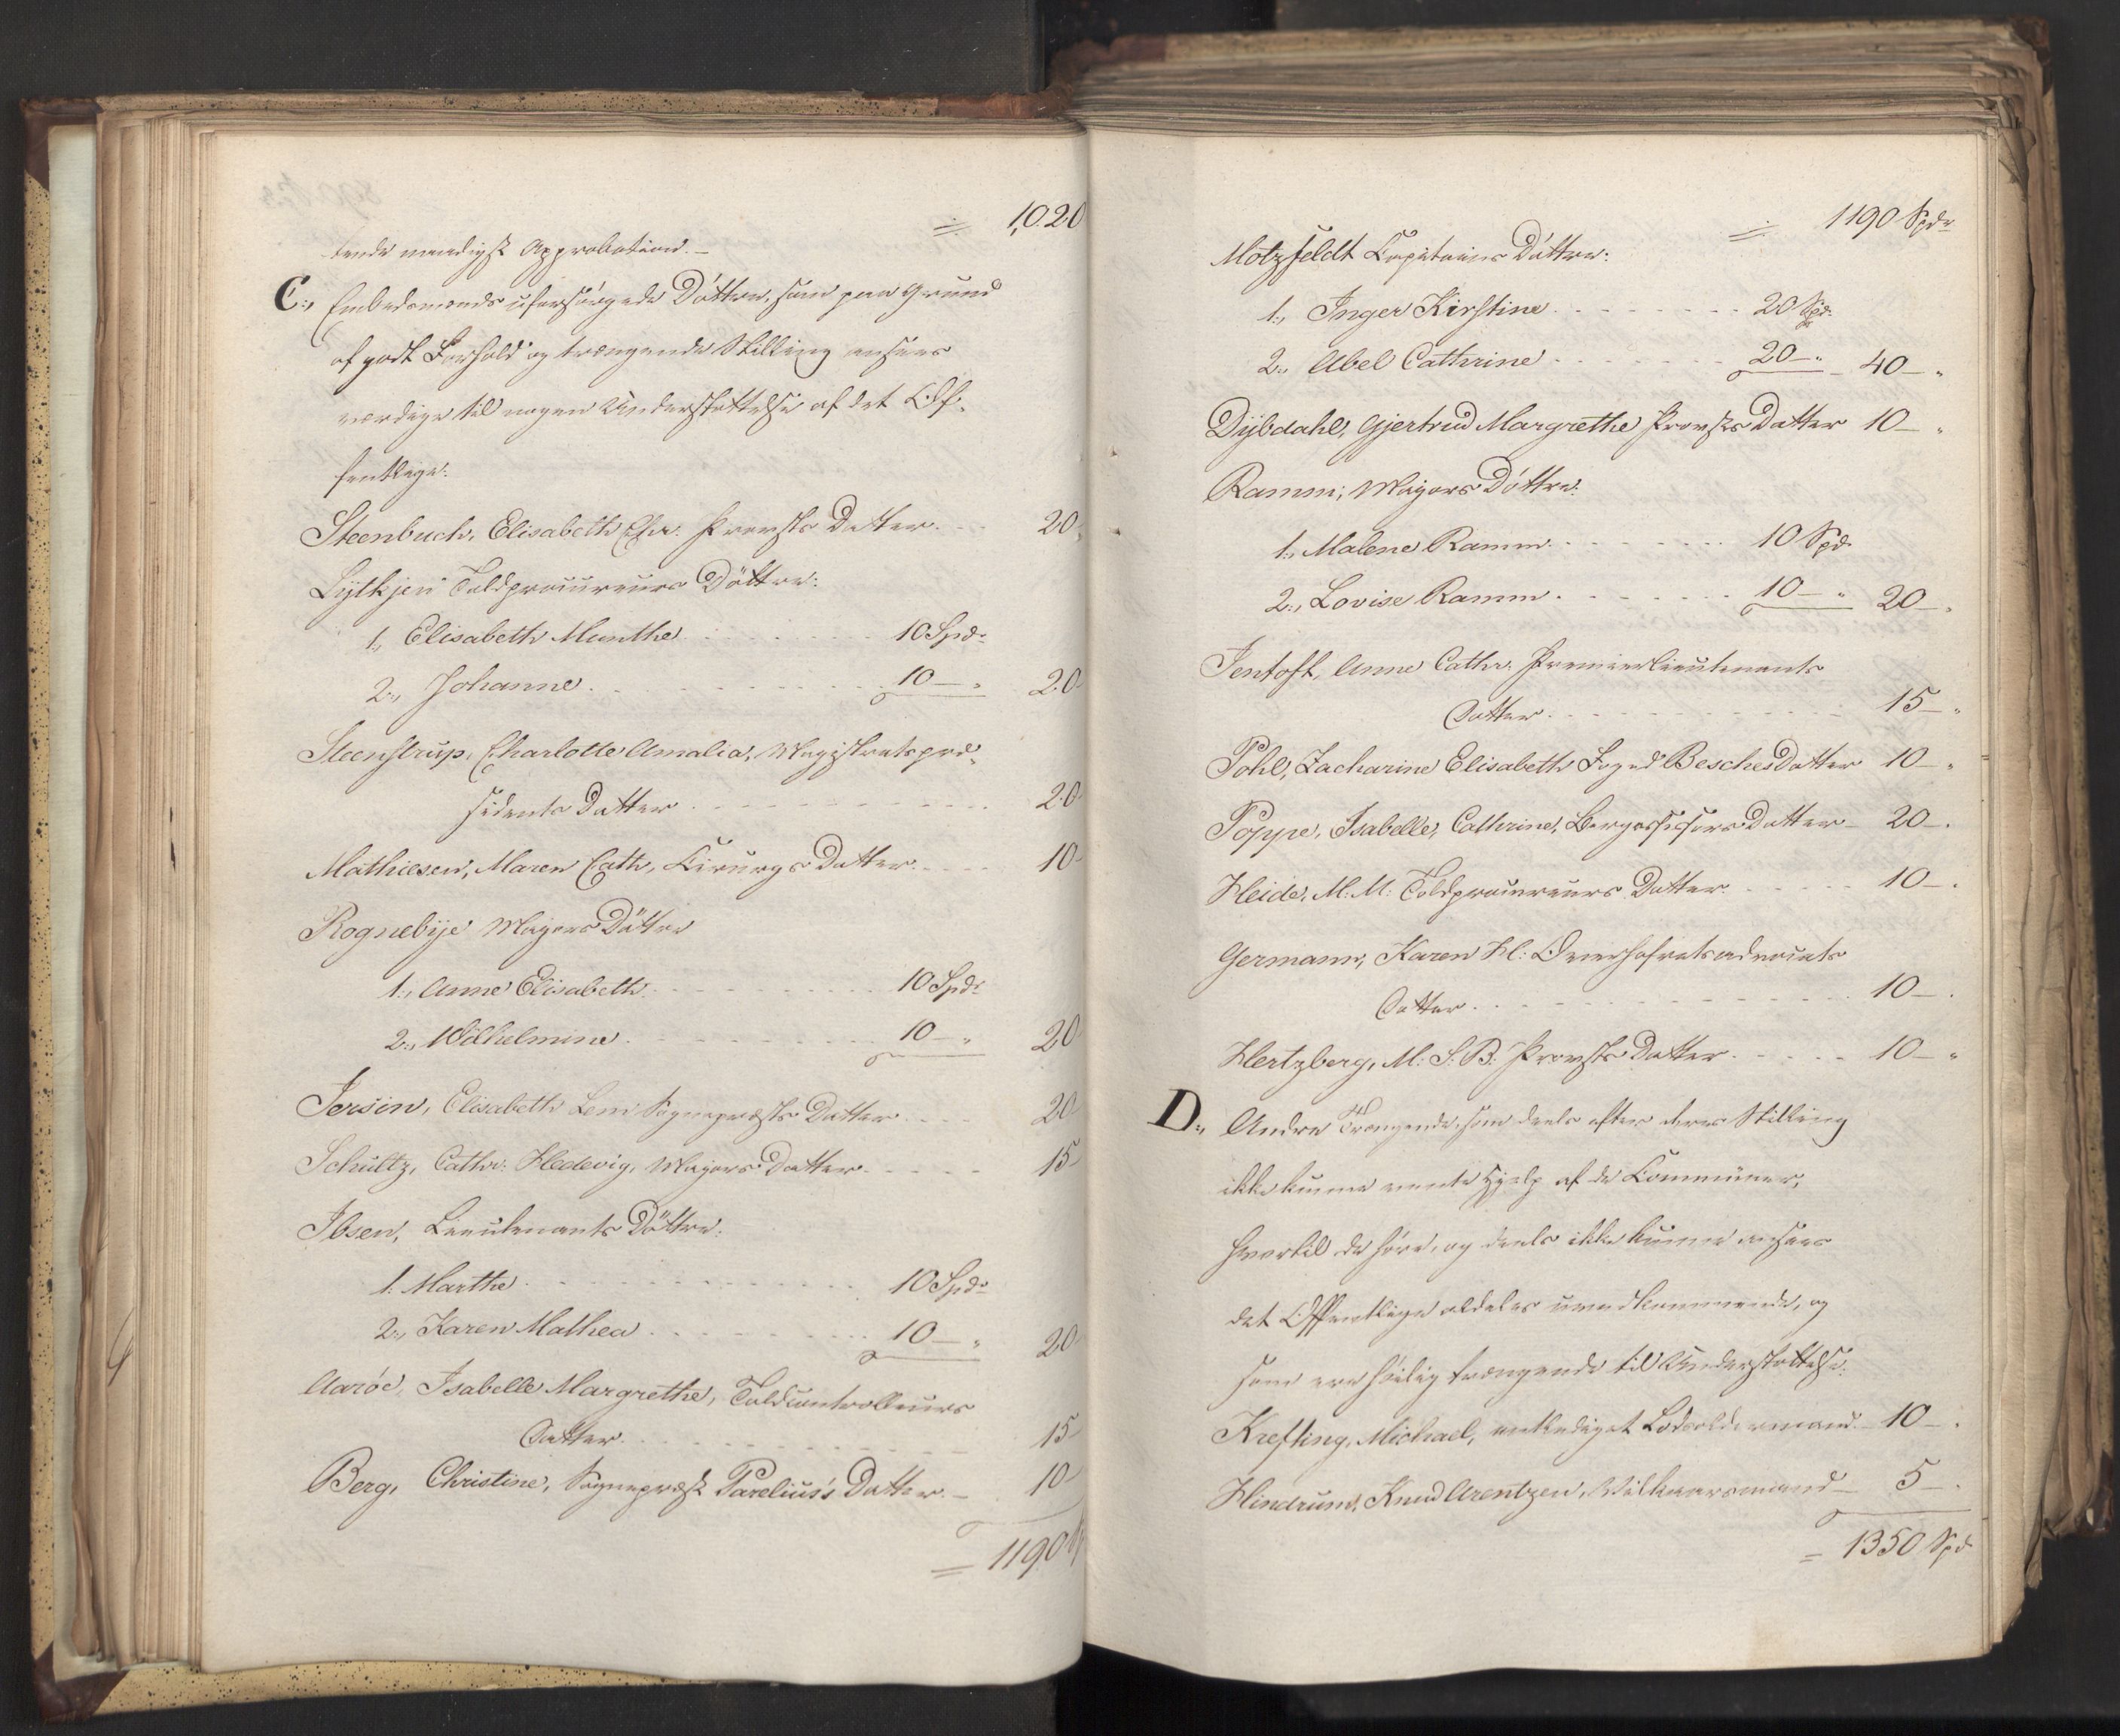 = 1,020
tende naadigst Approbation. –
C., Embedsmænds uforsørgede Döttre, som paa Grund
af godt Forhold og trængende Stilling ansees
værdige til nogen Understøttelse af det Of-
fentlige:
Steenbuch, Elisabeth Chr. Provsts Datter. 20
Lÿtkjen Toldprocureurs Döttre:
1., Elisabeth Munthe 10 Spd.
2., Johanne 10 – „ 20
Steenstrup, Charlotte Amalia, Magistratspræ-
sidents Datter 20
Mathiesen, Maren Cath, Kirurgs Datter 10
Rognebÿe Majors Döttre
1., Anne Elisabeth 10 Spd.
2., Wilhelmine 10 – „ 20
Jersin, Elisabeth Lem Sognepræsts Datter 20
Schultz, Cathr. Hedevig, Majors Datter 15
Ibsen, Lieutenants Döttre:
1. Marthe 10 Spd.
2., Karen Mathea 10 – „ 20
Aaröe, Isabelle Margrethe, Toldcontrolleurs
Datter. 15
Berg, Christine, Sognepræst Parelius's Datter. – 10
= 1190
= 1190 Spdr
Motzfeldt Capitains Döttre:
1., Inger Kirstine 20 Spd.
2., Abel Cathrine 20 – „ 40 – „
Dÿbdahl, Gjertrud Margrethe Provsts Datter 10 – „
Ramm, Majors Döttre.
1., Malene Ramm 10 Spd.
2., Lovise Ramm. 10 – „ 20 – „
Jentoft, Anne Cathr. Premierlieutenants
Datter. 15 – „
Pohl, Zacharine Elisabeth Foged Besches Datter 10 – „
Poppe, Isabelle, Cathrine, Bergassessors Datter – 20 – „
Heide, M. M. Toldprocureurs Datter 10 – „
Germann, Karen H: Overhofretsadvocats
Datter 10 – „
Hertzberg, M. S. B. Provsts Datter 10 – „
D., Andre Trængende, som deels efter deres Stilling
ikke kunne vente Hjelp af de Communer,
hvortil de høre, og deels ikke kunne ansees
det Offentlige aldeles uvedkommende, og
som ere høilig trængende til Understøttelse.
Krefting, Michael, entlediget Lodsoldermand. 10 – „
Hindrum, Knud Arentzen, Vilkaarsmand – 5 – „
= 1350 Spd.